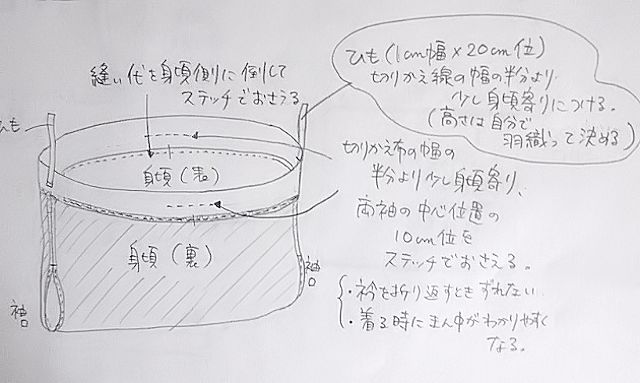 縫い代を身頃側に倒して
ステッチでおさえる
ひも(1cm幅×20cm位)
切りかえ線の幅の半分より
少し身頃寄りにつける。
(高さは自分で
羽織って決める)
ひも
身頃(表)
切りかえ布の幅の
半分より少し身頃寄り、
両袖の中心位置の
10cm位を
ステッチでおさえる。
身頃(裏)
袖口
袖口
・衿を折り返すときずれない
・着る時にまん中がわかりやすく
なる。